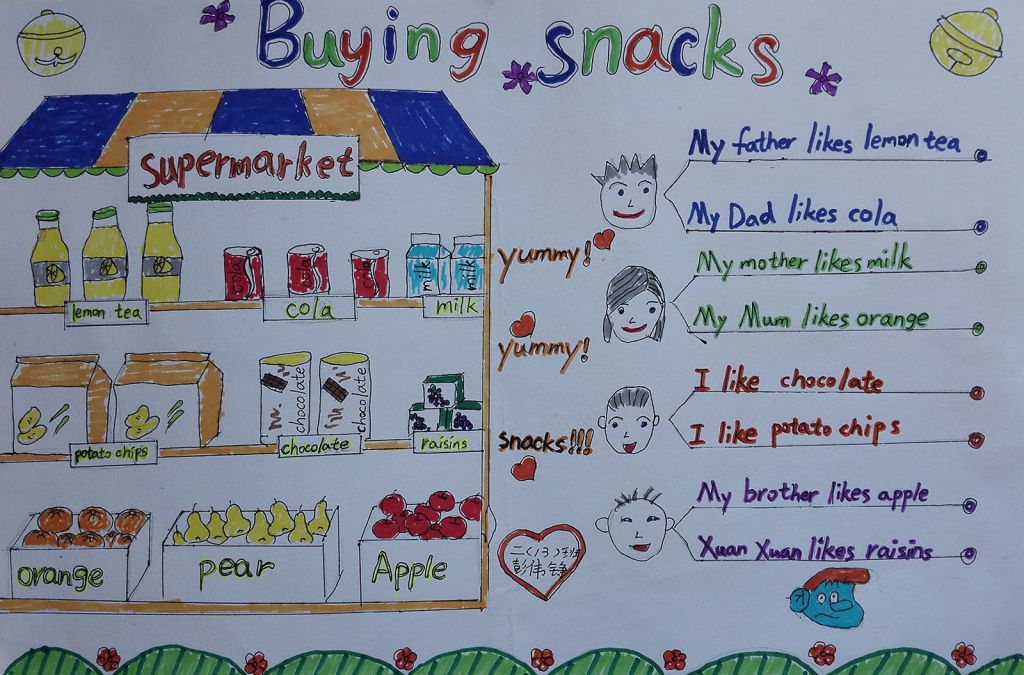 Buying snacks
supermarket
cola
cola
cola
milk
milk
lemon tea
cola
milk
chocolate
chocolate
potato chips
chocolate
raisins
orange
pear
Apple
yummy!
yummy!
snacks!!!
二(13)班
彭伟铮
My father likes lemon tea
My Dad likes cola
My mother likes milk
My Mum likes orange
I like chocolate
I like potato chips
My brother likes apple
Xuan Xuan likes raisins